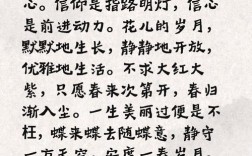 心。信仰是指路明灯，信心
是前进动力。花儿的岁月，
默默地生长，静静地开放，
优雅地生活。不求大红大
紫，只愿春来次第开，春归
渐入尘。一生美丽过便是不
枉，蝶来蝶去随蝶意，静守
一方天空，安度一春岁月。